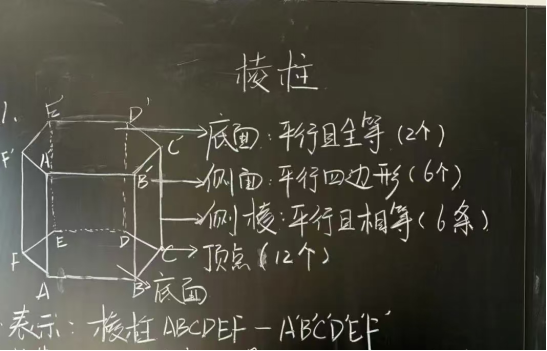 棱柱
1.
E' D'
F' A' B' C'
底面:平行且全等(2个)
侧面:平行四边形(6个)
侧棱:平行且相等(6条)
E D
F C
顶点(12个)
A B
底面
表示:棱柱ABCDEF-A'B'C'D'E'F'